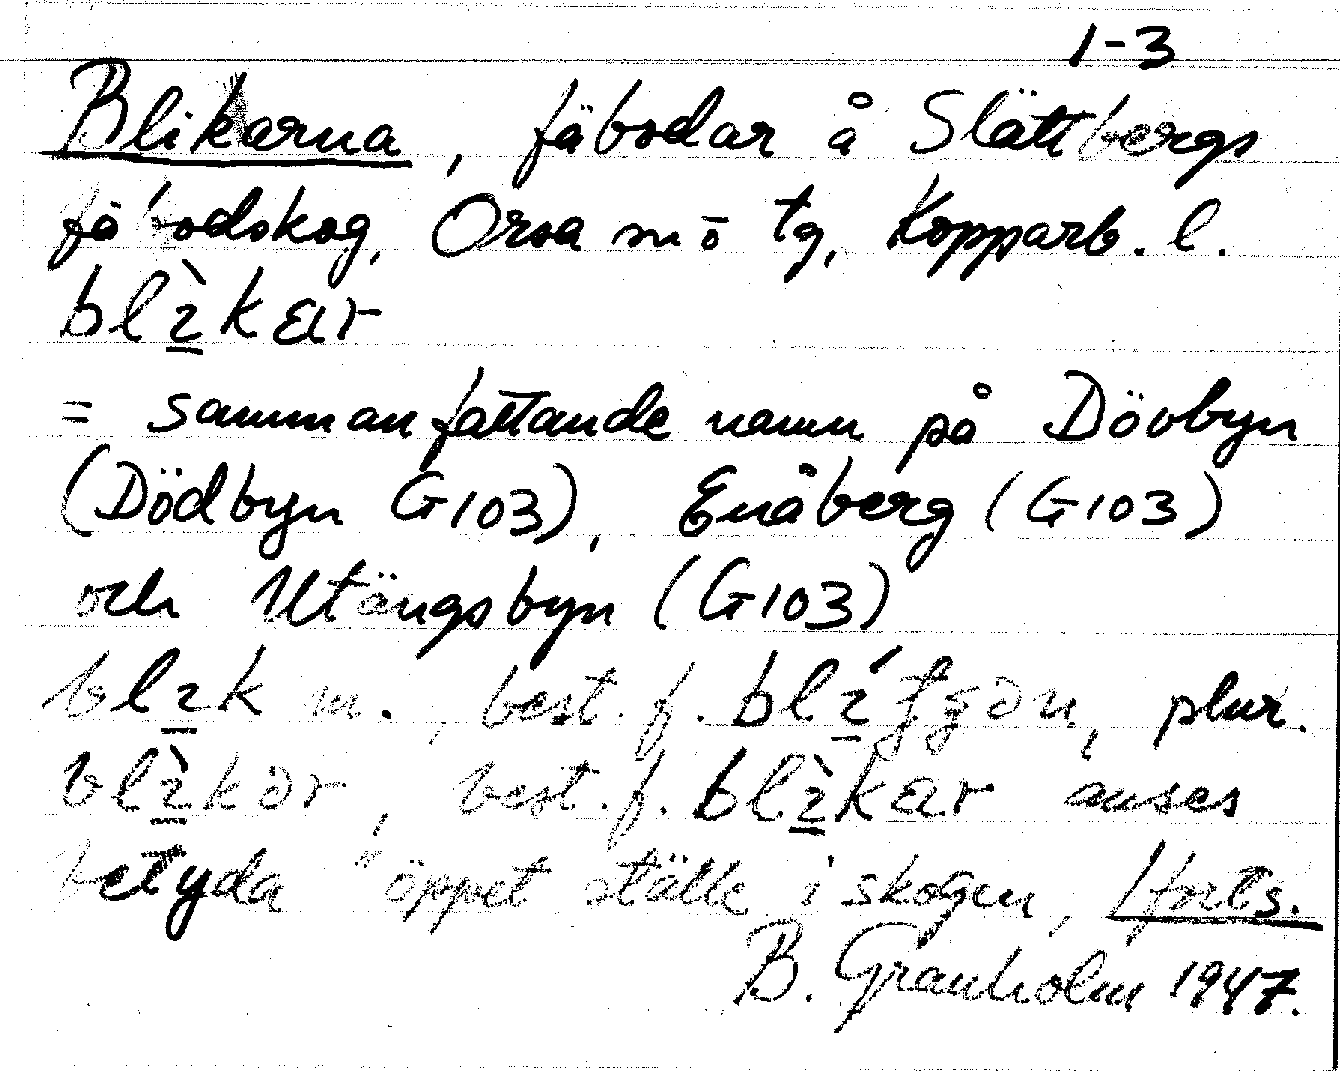 1-3
Blikarna, fäbodar å Slättbergs
fäbodskog, Orsa sn ö tg, Kopparb. l.
blɪ̲̀kar
= sammanfattande namn på Dövbyn
(Dödbyn G103), Enåberg (G103)
och Utängsbyn (G103)
blɪ̲k m., best. f. , plur.
blɪ̲̀kər, best. f. blɪ̲̀kar anses
betyda "öppet ställe i skogen, /forts.
B. Granholm 1947.